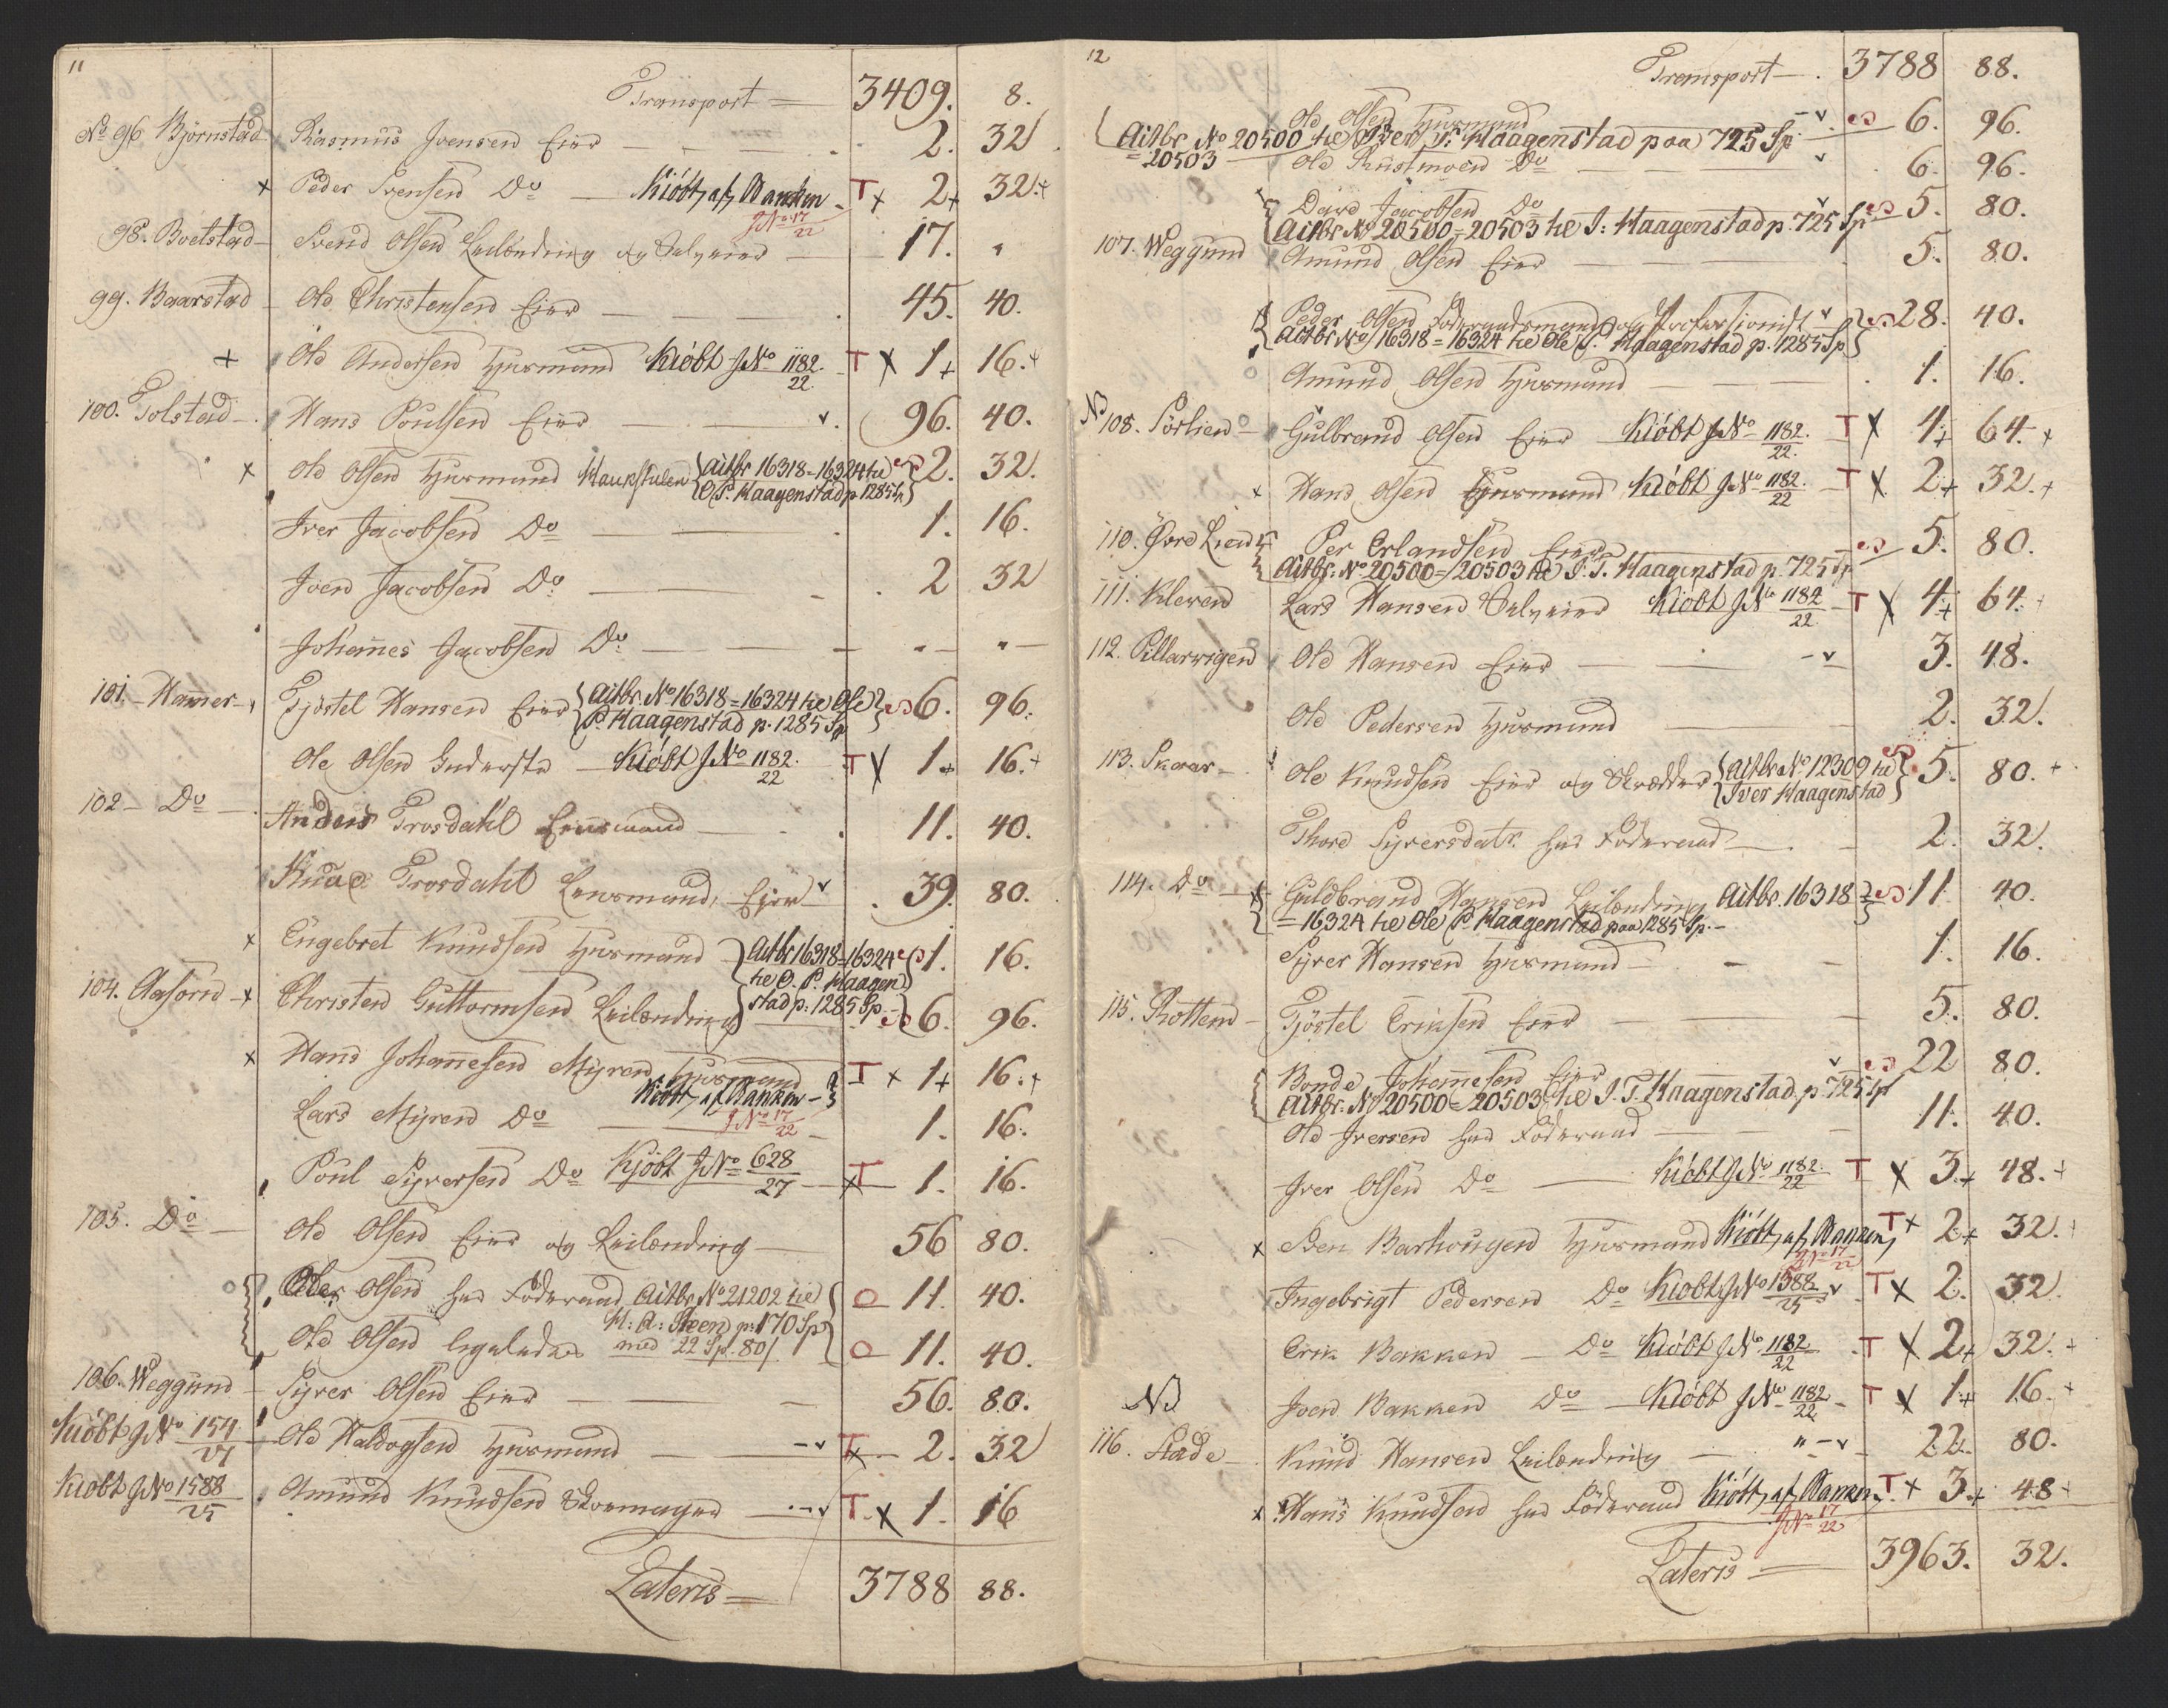 11
Transport = 3409. 8.
No 96 Björnstad Rasmus Joensen Eier 2. 32
x Peder Svensen Do Kiöbt af Banken T x 2+ 32.+
JNo 17/22
98. Boelstad Svend Olsen Leilending og Selveier 17. "
99. Baarstad Ole Christensen Eier 45. 40.
+ Ole Andersen Huusmand Kiöbt JNo 1182/22 T x 1+ 16.+
100. Tolstad Hans Poulsen Eier v. 96. 40.
x Ole Olsen Huusmand Haukstulen Aitbr 16318=16324 til 2. 32.
O. P. Haagenstad p 1285
Iver Jacobsen Do 1. 16.
Joen Jacobsen Do 2 32
Johannes Jacobsen Do " "
101. Hammer Tjöstel Hansen Eier Aitbr. No 16318=16324 til Ole 6. 96.
P. Haagenstad p. 1285 Sp
Ole Olsen Inderste Kiöbt JNo 1182/22 T x 1+ 16.+
102 Do Anders Trosdahl 11. 40.
Knud Trosdahl Lensmand, Eier v 39. 80.
x Engebret Knudsen Huusmand Aitbr 16318=16324 1. 16.
til O. P. Haagen
104. Aasören x Christen Guttormsen Leilending stad p. 1285 Sp. 6. 96.
x Hans Johannesen Myren Huusmand T x 1+ 16.+
Kiöbt af Banken
Lars Myren Do JNo 17/22 1. 16.
Poul Syversen Do Kjöbt JNo 628/27 xT 1. 16.
105. Do Ole Olsen Eier og Leilending 56 80.
Ole Olsen har Föderaad Aitbr No 21202 til O 11. 40.
H: A: Steen p: 170 Sp
Ole Olsen ligeledes med 22 Sp. 80 O 11. 40.
106. Weggund Syver Olsen Eier 56. 80.
Kiöbt JNo 154/27 Ole Haldogsen Huusmand v T x 2. 32
Kiöbt JNo 1588/25 Amund Knudsen Skoemager v T x 1. 16
Lateris = 3788 88.
12
Transport 3788 88.
Ole Olsen Huusmand v. 6. 96.
Aitbr No 20500 til Iver T. Haagenstad paa 725 Sp
= 20503 Ole Rustmoen Do v 6. 96.
David Jacobsen Do v 5. 80.
Aitbr No 20500=20503 til I: Haagenstad p. 725 Sp
107. Weggund Amund Olsen Eier 5. 80.
Peder Olsen Föderaadsmand og Professionist v 28. 40.
Aitbr No 16318=16324 til Ole P. Haagenstad p. 1285 Sp
Amund Olsen Huusmand 1. 16.
No 108. Sörlien Gulbrand Olsen Eier Kiöbt JNo 1182/22 T x 4+ 64.+
x Hans Olsen Huusmand Kiöbt JNo 1182/22 T x 2+ 32.+
110. Övre Lien Per Erlandsen Eier 5. 80.
Aitbr. No 20500=20503 til I. T. Haagenstad p. 725 Sp
111. Kleven Lars Hansen Selveier Kiöbt JNo 1182/22 T x 4+ 64.+
112. Pillarvigen Ole Hansen Eier v 3. 48.
Ole Pedersen Huusmand 2. 32.
113. Skaar Ole Knudsen Eier og Skrædder Aitbr No 12309 til 5. 80.+
Iver Haagenstad
Thore Syversdatr. har Föderaad 2. 32.
114. Do x Guldbrand Hansen Leilending Aitbr. 16318 11 40.
= 16324 til Ole P. Haagenstad paa 1285 Sp.
Syver Hansen Huusmand 1. 16.
115. Rottem Tjöstel Eriksen Eier 5. 80.
Bonde Johannesen Eier v 22 80.
Aitbr. No 20500=20503 til I. T. Haagenstad p. 725 Sp
Ole Iversen har Föderaad 11. 40.
Iver Olsen Do Kiöbt JNo 1182/22 T x 3+ 48.+
x Sven Barhougen Huusmand Kiöbt af Banken T x 2+ 32.+
JNo 17/22
Ingebrigt Pedersen Do Kiöbt JNo 1588/25 v T x 2. 32.
Erik Bakken Do Kiöbt JNo 1182/22 T x 2+ 32.+
Joen Bakken Do Kiöbt JNo 1182/22 T x 1+ 16.+
NB
116. Stade Knud Hansen Leilending " v 22. 80.
x Hans Knudsen har Föderaad Kiöbt af Banken T x 3+ 48+
JNo 17/22
Lateris 3963. 32.